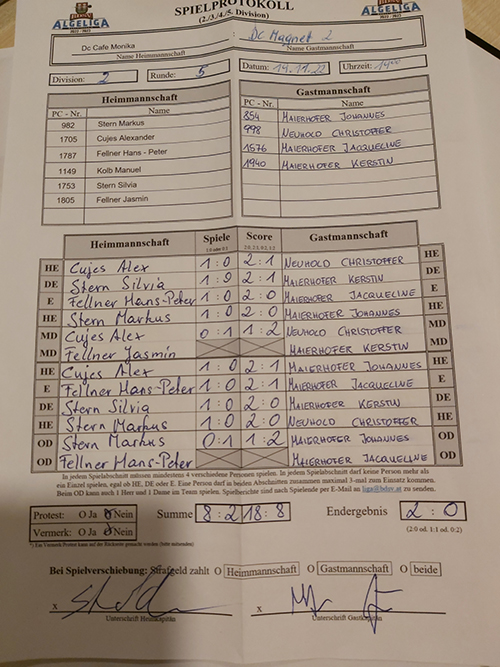 BDSV
ALGELIGA
2022 - 2023
SPIELPROTOKOLL
(2./3./4./5. Division)
BDSV
ALGELIGA
2022 - 2023
Dc Cafe Monika : Dc Magnet 2
Name Heimmannschaft Name Gastmannschaft
Division: 2 Runde: 5 Datum: 19.11.22 Uhrzeit: 14⁰⁰
Heimmannschaft
PC - Nr. Name
982 Stern Markus
1705 Cujes Alexander
1787 Fellner Hans - Peter
1149 Kolb Manuel
1753 Stern Silvia
1805 Fellner Jasmin
Gastmannschaft
PC - Nr. Name
854 MAIERHOFER JOHANNES
998 NEUHOLD CHRISTOFFER
1576 MAIERHOFER JACQUELINE
1940 MAIERHOFER KERSTIN
Heimmannschaft Spiele Score Gastmannschaft
1:0 oder 0:1 2:0, 2:1, 0:2, 1:2
HE Cujes Alex 1:0 2:1 NEUHOLD CHRISTOFFER HE
DE Stern Silvia 1:0 2:1 MAIERHOFER KERSTIN DE
E Fellner Hans-Peter 1:0 2:0 MAIERHOFER JACQUELINE E
HE Stern Markus 1:0 2:0 MAIERHOFER JOHANNES HE
MD Cujes Alex 0:1 1:2 NEUHOLD CHRISTOFFER MD
MD Fellner Jasmin MAIERHOFER KERSTIN MD
HE Cujes Alex 1:0 2:1 MAIERHOFER JOHANNES HE
E Fellner Hans-Peter 1:0 2:1 MAIERHOFER JACQUELINE E
DE Stern Silvia 1:0 2:0 MAIERHOFER KERSTIN DE
HE Stern Markus 1:0 2:0 NEUHOLD CHRISTOFFER HE
OD Stern Markus 0:1 1:2 MAIERHOFER JOHANNES OD
OD Fellner Hans-Peter MAIERHOFER JACQUELINE OD
In jedem Spielabschnitt müssen mindestens 4 verschiedene Personen spielen. In jedem Spielabschnitt darf keine Person mehr als
ein Einzel spielen, egal ob HE, DE oder E. Eine Person darf in beiden Abschnitten zusammen maximal 3-mal zum Einsatz kommen.
Beim OD kann auch 1 Herr und 1 Dame im Team spielen. Spielberichte sind nach Spielende per E-Mail an liga@bdsv.at zu senden.
Protest: O Ja O Nein Summe 8:2 18:8 Endergebnis 2:0
Vermerk: O Ja O Nein (2:0 od. 1:1 od. 0:2)
*) Ein Vermerk Protest kann auf der Rückseite gemacht werden (bitte ankreuzen)
Bei Spielverschiebung: Strafgeld zahlt O Heimmannschaft O Gastmannschaft O beide
x x
Unterschrift Heimkapitän Unterschrift Gastkapitän